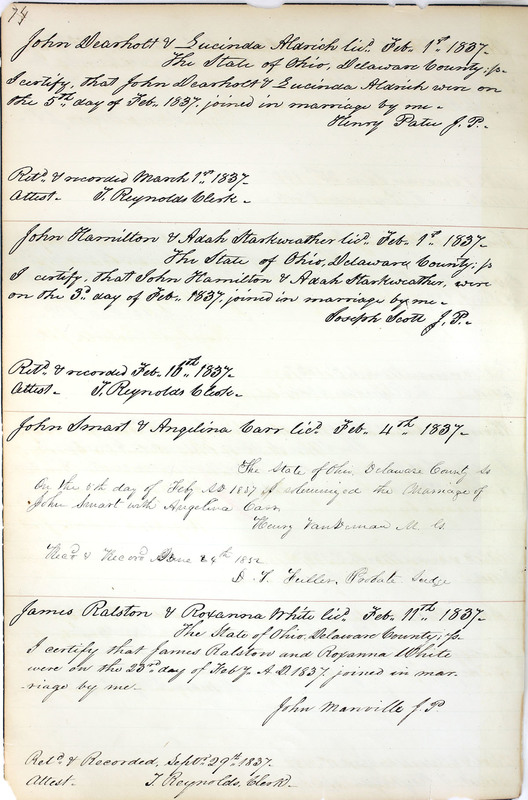 74
John Dearholt & Lucinda Aldrich licd. Feb. 1st. 1837.
The State of Ohio, Delaware County; ss
I certify, that John Dearholt & Lucinda Aldrich were on
the 5th. day of Feb. 1837, joined in marriage by me.
Henry Patee J. P.
Retd. & recorded March 1st. 1837.
Attest. T. Reynolds Clerk.
John Hamilton & Adah Starkweather licd. Feb. 1st. 1837.
The State of Ohio, Delaware County; ss
I certify, that John Hamilton & Adah Starkweather, were
on the 3d. day of Feb. 1837, joined in marriage by me.
Joseph Scott J. P.
Retd. & recorded Feb. 10th. 1837.
Attest. T. Reynolds Clerk.
John Smart & Angelina Carr licd. Feb. 4th. 1837.
The State of Ohio, Delaware County ss
On the day of Feby AD 1837 I solemnized the Marriage of
John Smart with Angelina Carr
Henry VanDeman M. G.
Recd & Record June 24th 1852
D. T. Fuller, Probate Judge
James Ralston & Roxanna White licd. Feb. 11th. 1837.
The State of Ohio, Delaware County; ss.
I certify that James Ralston and Roxanna White
were on the 23rd. day of Feb'y. A.D. 1837, joined in mar-
riage by me.
John Manville J. P.
Retd. & Recorded, Septr. 29th. 1837.
Attest. T. Reynolds, Clerk.